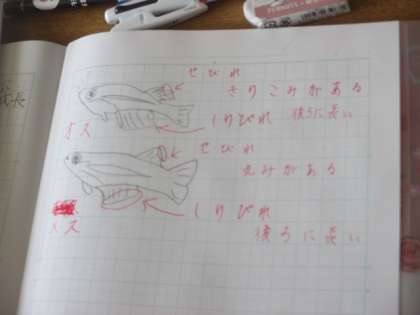 せびれ
きりこみがある
しりびれ 後ろに長い
オス
せびれ
丸みがある
しりびれ
後ろに長い
メス
長